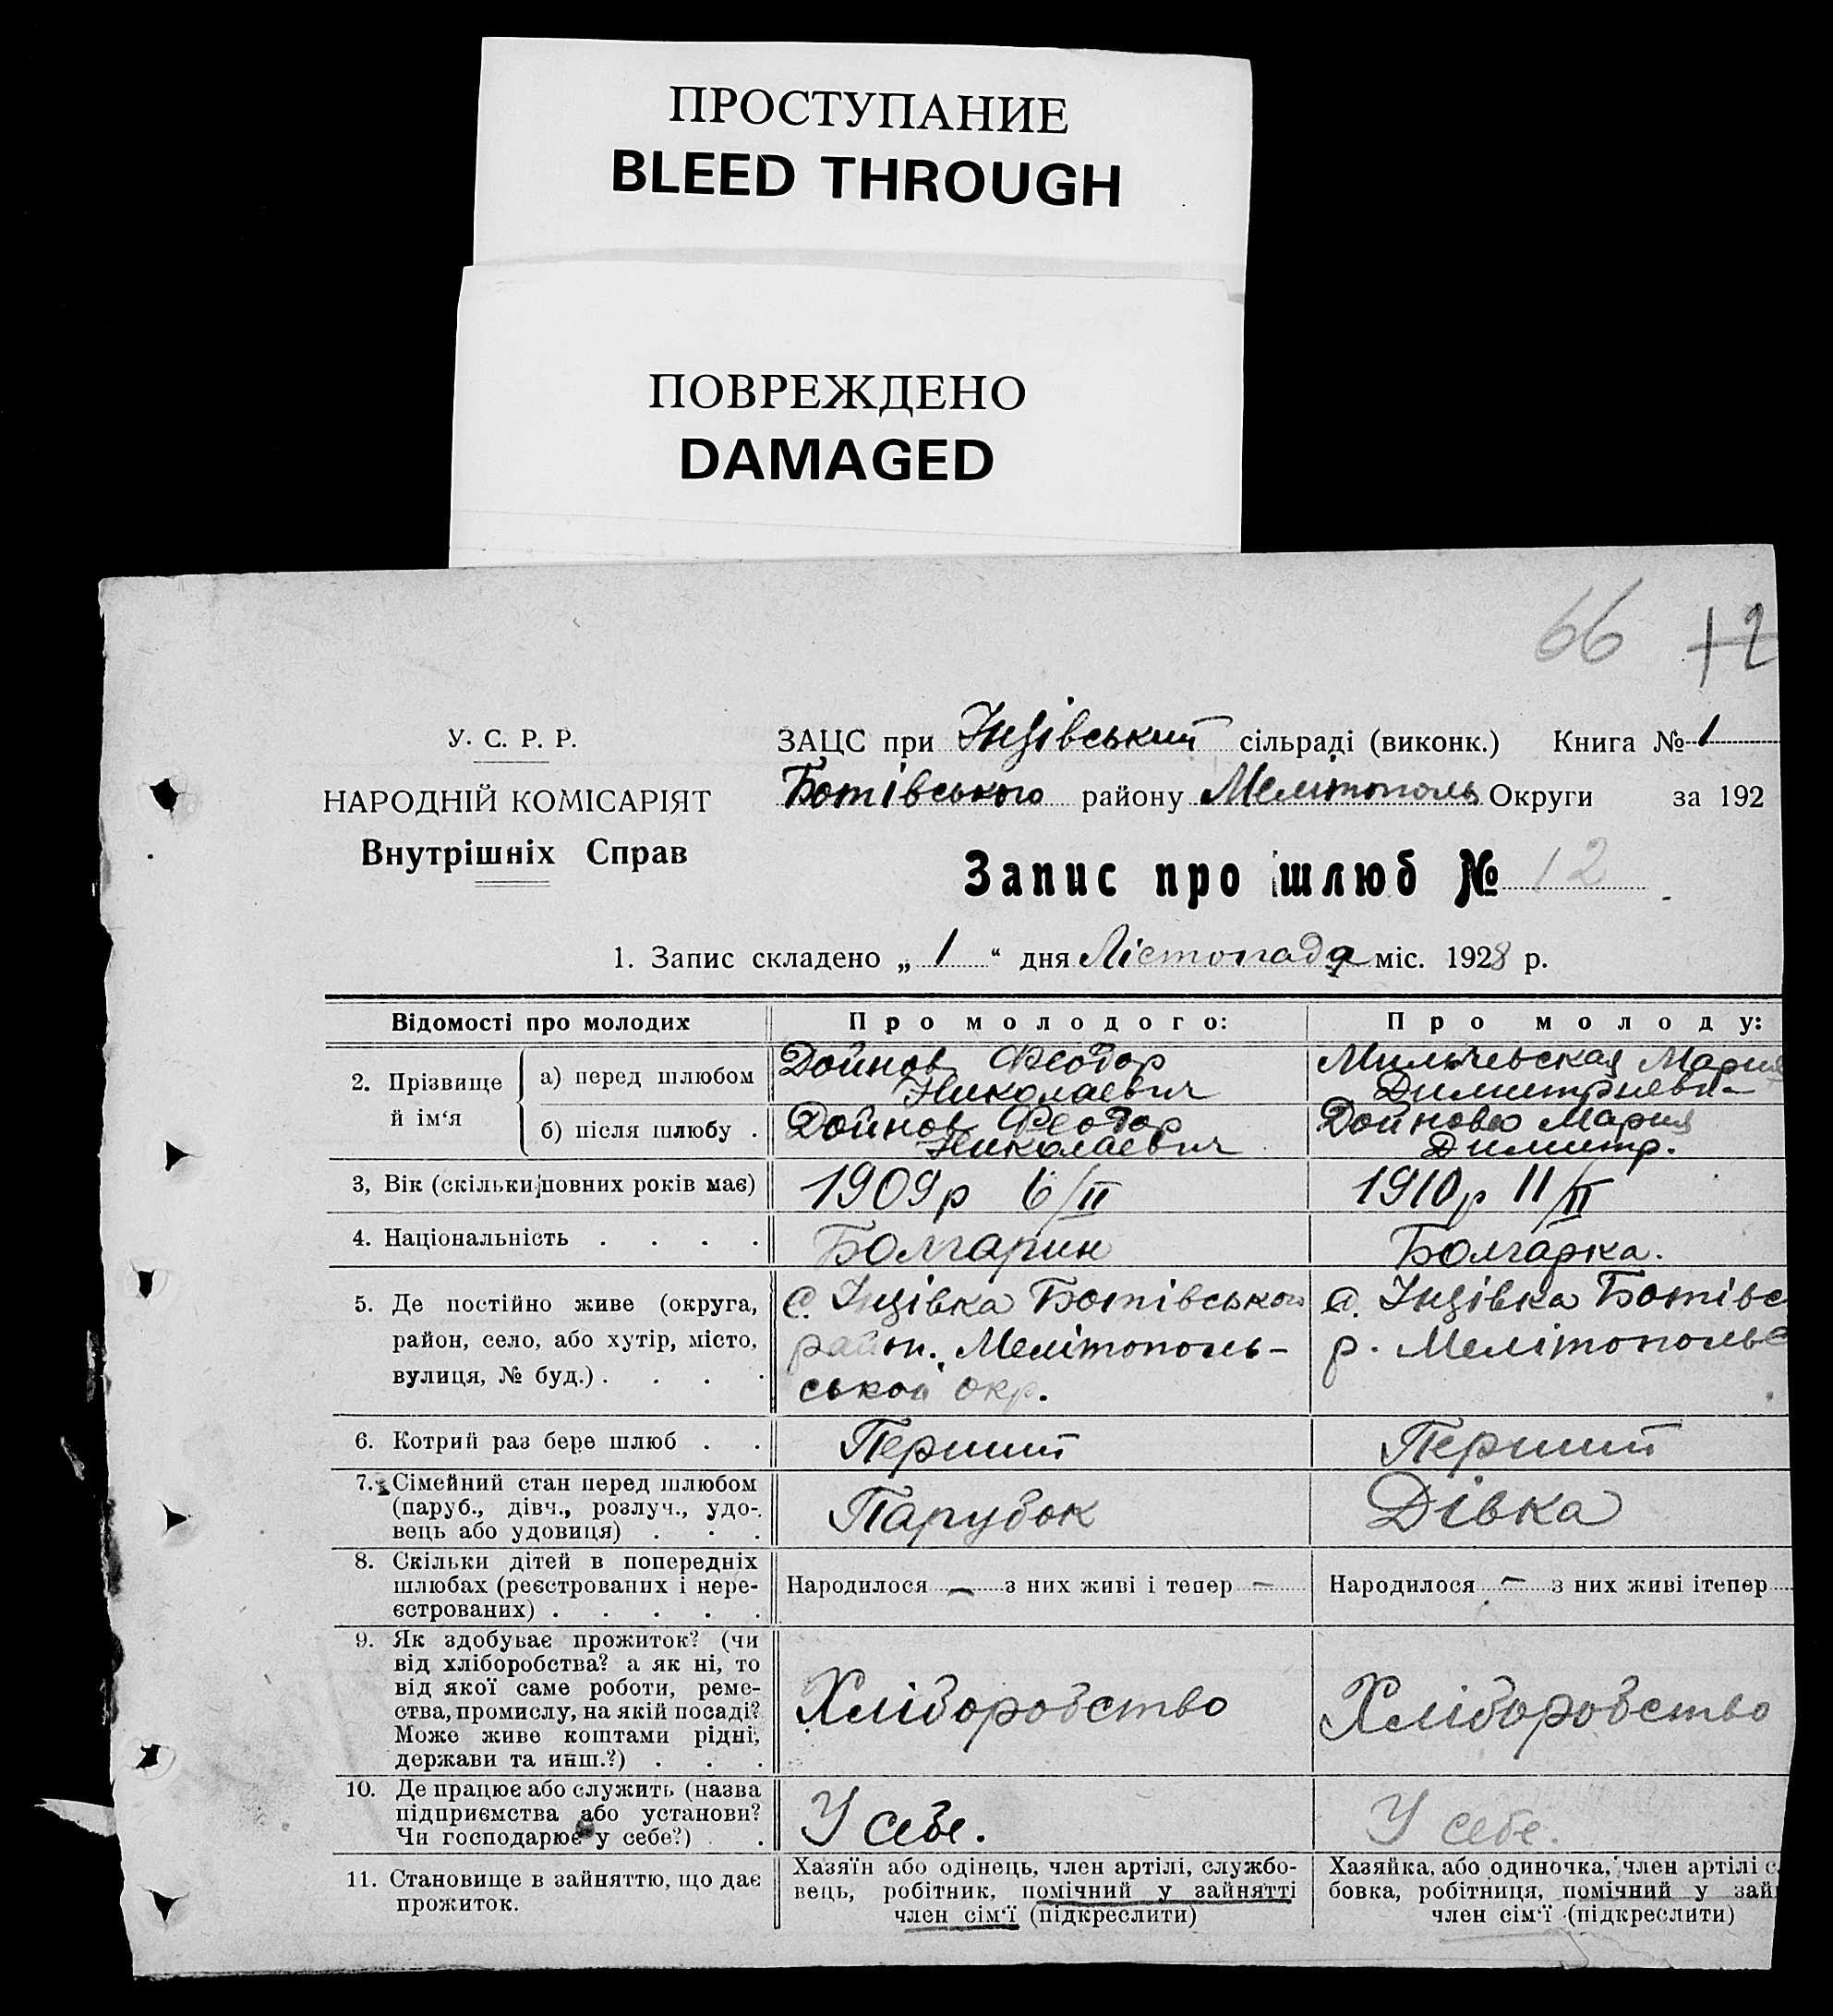 ПРОСТУПАНИЕ
BLEED THROUGH
ПОВРЕЖДЕНО
DAMAGED
66 12
У. С. Р. Р.
НАРОДНІЙ КОМІСАРІЯТ
Внутрішніх Справ
ЗАЦС при Інзівський сільраді (виконк.) Книга № 1
Ботівського району Мелітополь Округи за 192
Запис про шлюб № 12
1. Запис складено „ 1 “ дня Лістопада міс. 1928 р.
Відомості про молодих
Про молодого:
Про молоду:
2. Прізвище й ім‘я
а) перед шлюбом
Дойнов Феодор
Николаевич
Мильчевская Мария
Димитриевн-
б) після шлюбу .
Дойнов Феодор
Николаевич
Дойнова Мария
Димитр.
3, Вік (скільки повних років має)
1909р 6/II
1910р 11/II
4. Національність . . . .
Болгарин
Болгарка.
5. Де постійно живе (округа,
район, село, або хутір, місто,
вулиця, № буд.) . . . .
С. Інзівка Ботівського
район. Мелітополь-
ськой окр.
С. Інзівка Ботівс
р. Мелітопольс
6. Котрий раз бере шлюб . .
Перший
Перший
7. Сімейний стан перед шлюбом
(паруб., дівч., розлуч., удо-
вець або удовиця) . . .
Парубок
Дівка
8. Скільки дітей в попередніх
шлюбах (реєстрованих і нере-
єстрованих) . . . . .
Народилося — з них живі і тепер —
Народилося — з них живі ітепер
9. Як здобуває прожиток? (чи
від хліборобства? а як ні, то
від якої саме роботи, реме-
ства, промислу, на якій посаді?
Може живе коштами рідні,
держави та инш.?) . . .
Хліборобство
Хліборобство
10. Де працює або служить (назва
підприємства або установи?
Чи господарює у себе?) . .
У себе.
У себе.
11. Становище в зайняттю, що дає
прожиток.
Хазяїн або одінець, член артілі, службо-
вець, робітник, помічний у зайнятті
член сім‘ї (підкреслити)
Хазяйка, або одиночка, член артілі с
бовка, робітниця, помічний у зай
член сім‘ї (підкреслити)